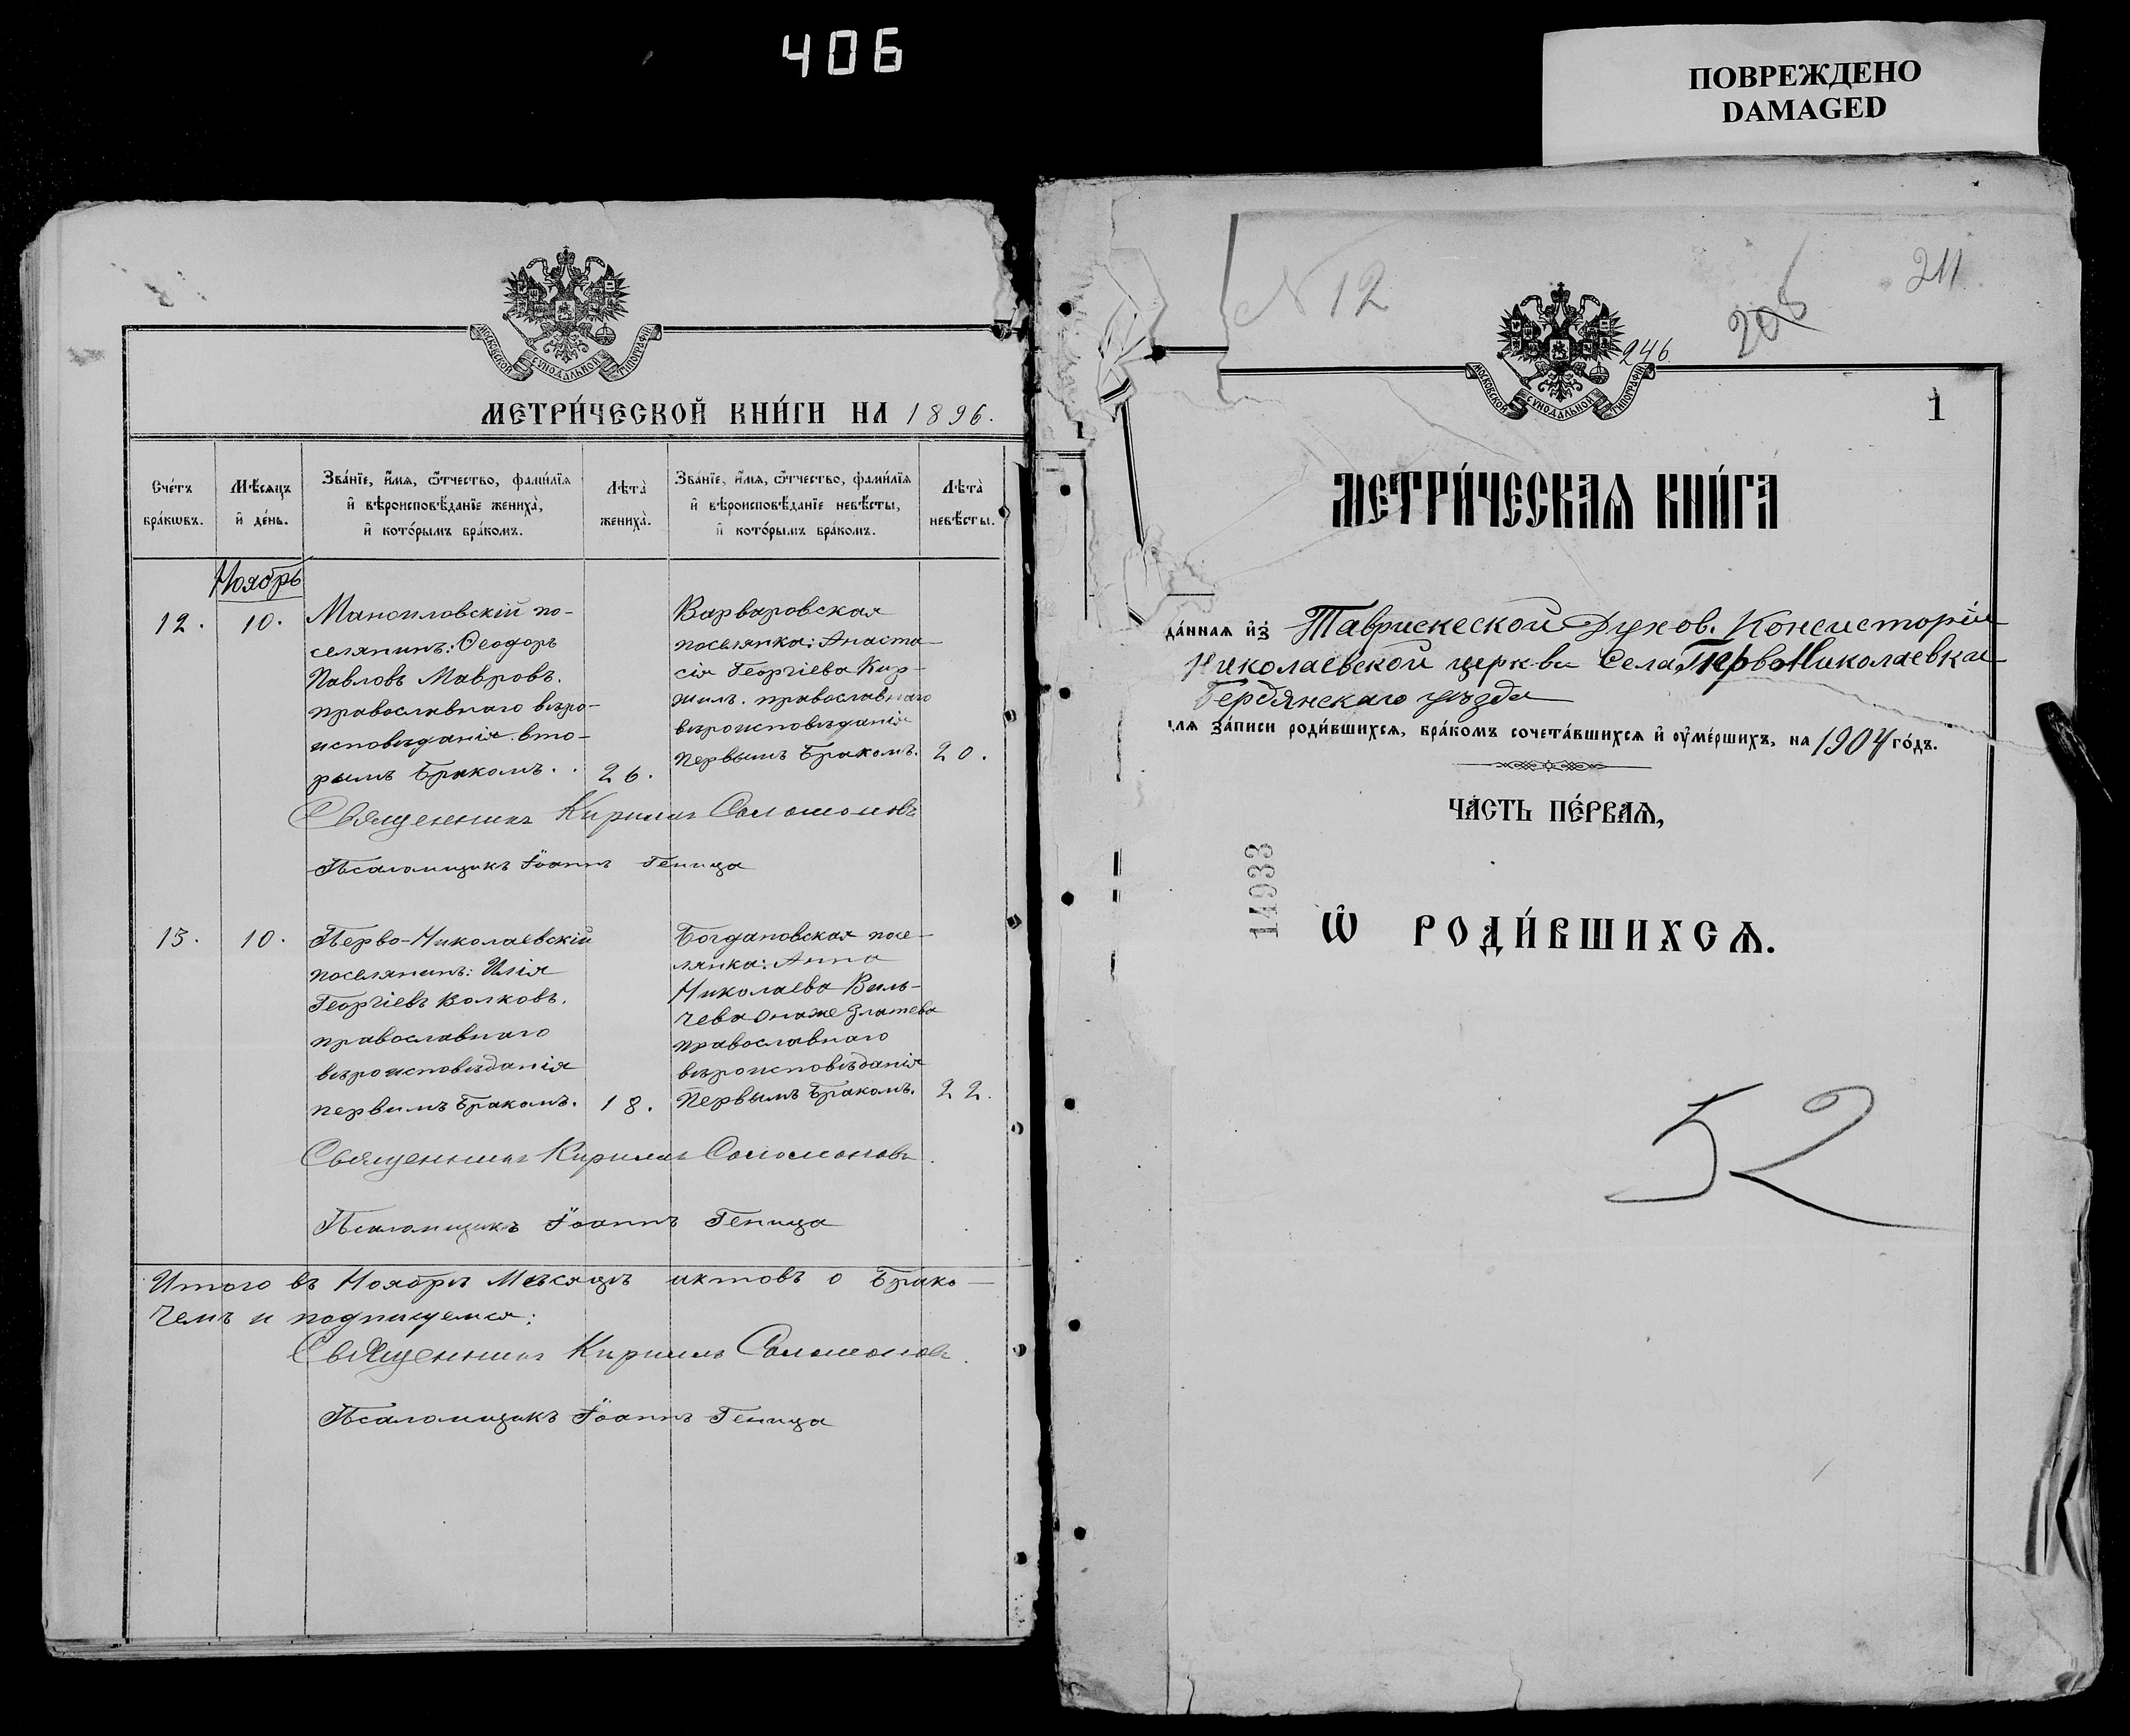 406
ПОВРЕЖДЕНО
DAMAGED
МОСКОВСКОЙ СУНОДАЛЬНОЙ ТИПОГРАФІИ
МЕТРИ́ЧЕСКОЙ КНИ́ГИ НА 1896.
Сче́тъ бра́кѡвъ.
Мѣ́сяцъ и҆ де́нь.
Зва́нїе, и҆́мѧ, ѻ҆́тчество, фами́лїѧ и҆ вѣроисповѣ́данїе жениха̀, и҆ кото́рымъ бра́комъ.
Лѣта̀ жениха̀.
Зва́нїе, и҆́мѧ, ѻ҆́тчество, фами́лїѧ и҆ вѣроисповѣ́данїе невѣ́сты, и҆ кото́рымъ бра́комъ.
Лѣта̀ невѣ́сты.
Ноябрь
12. 10.
Маноиловскій по-
селянинъ: Ѳеодоръ
Павловъ Мавровъ.
православнаго вѣро-
исповѣданія. вто-
рымъ бракомъ. 26.
Варваровская
поселянка: Анаста-
сія Георгіева Кир-
православнаго
вѣроисповѣданія
первымъ бракомъ. 20.
Священникъ Кириллъ Соломоновъ
Псаломщикъ Іоаннъ Геница
13. 10.
Перво-Николаевскій
поселянинъ: Илія
Георгіевъ Волковъ.
православнаго
вѣроисповѣданія
первымъ бракомъ. 18.
Богдановская посе-
лянка: Анна
Николаева Виль-
чева онаже Златева
православнаго
вѣроисповѣданія
первымъ бракомъ. 22.
Священникъ Кириллъ Соломоновъ.
Псаломщикъ Іоаннъ Геница
Итого въ Ноябрѣ мѣсяцѣ актовъ о брако-
чемъ и подпишемся:
Священникъ Кириллъ Соломоновъ.
Псаломщикъ Іоаннъ Геница
N 12
206
211
246.
МОСКОВСКОЙ СУНОДАЛЬНОЙ ТИПОГРАФІИ
1
МЕТРИ́ЧЕСКАѦ КНИ́ГА
да́ннаѧ и҆з̾ Таврической Духов. Консисторіи
Николаевской церкви Села ПервоНиколаевки
Бердянскаго уѣзда
лѧ за́писи роди́вшихсѧ, бра́комъ сочета́вшихсѧ и҆ ᲂу҆ме́ршихъ, на 1904 го́дъ.
ЧА́СТЬ ПЕ́РВАѦ,
Ѽ РОДИ́ВШИХСѦ.
14933
52